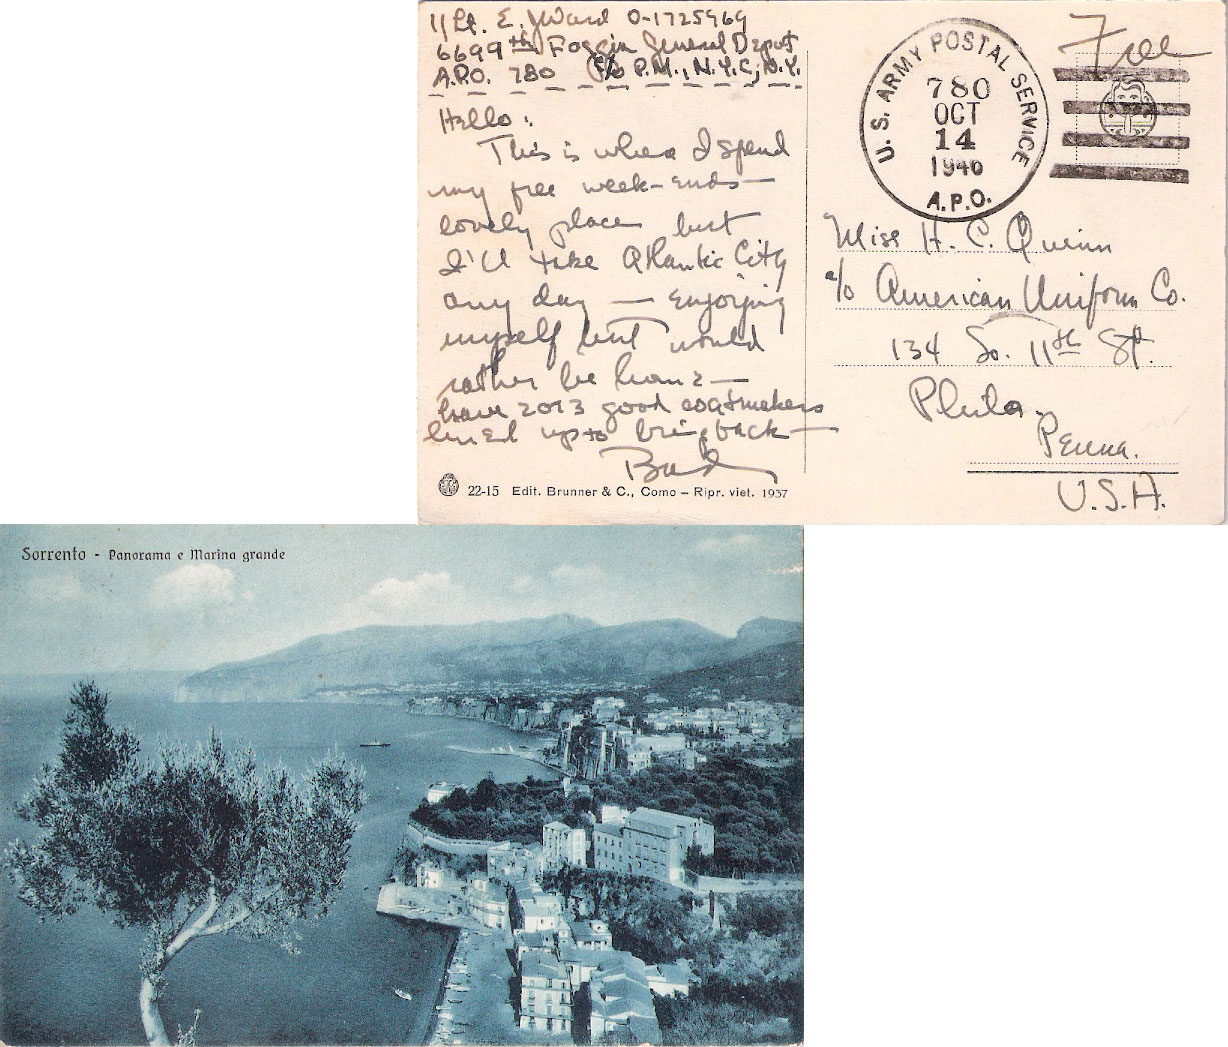 1/Lt. E. J. Ward O-1725969
6699th Foggia General Depot
A.P.O. 780 c/o P.M., N.Y.C., N.Y.
Hello:
This is where I spend
my free week-ends —
lovely place but
I'll take Atlantic City
any day — enjoying
myself but would
rather be home —
have 2 or 3 good coatmakers
lined up to bring back —
Bud
22-15 Edit. Brunner & C., Como - Ripr. viet. 1937
U.S. ARMY POSTAL SERVICE
780
OCT
14
1946
A.P.O.
Free
Miss H. C. Quinn
c/o American Uniform Co.
134 So. 11th St.
Phila.
Penna.
U.S.A.
Sorrento - Panorama e Marina grande